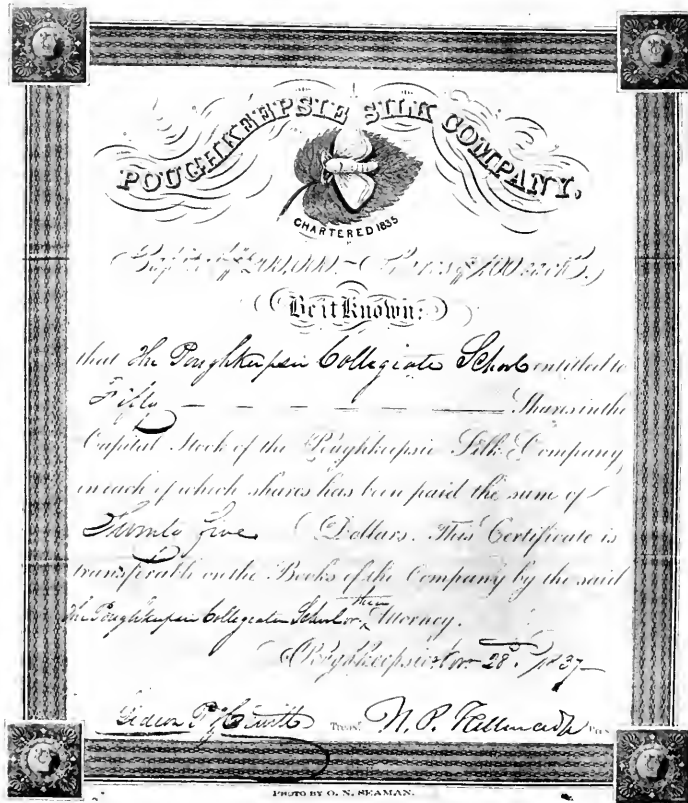 POUGHKEEPSIE SILK COMPANY.
CHARTERED 1835
Capital $200,000.— Shares $100 each
Be it Known:
that The Poughkeepsie Collegiate School entitled to
Fifty — — — — — — Shares in the
Capital Stock of the Poughkeepsie Silk Company
on each of which shares has been paid the sum of
Twenty five Dollars. This Certificate is
transferable on the Books of the Company by the said
The Poughkeepsie Collegiate School or their Attorney.
Poughkeepsie 28 1837
Gideon P. Hewitt Treasr. N. P. Tallmadge Pres
PHOTO BY O. N. SEAMAN.